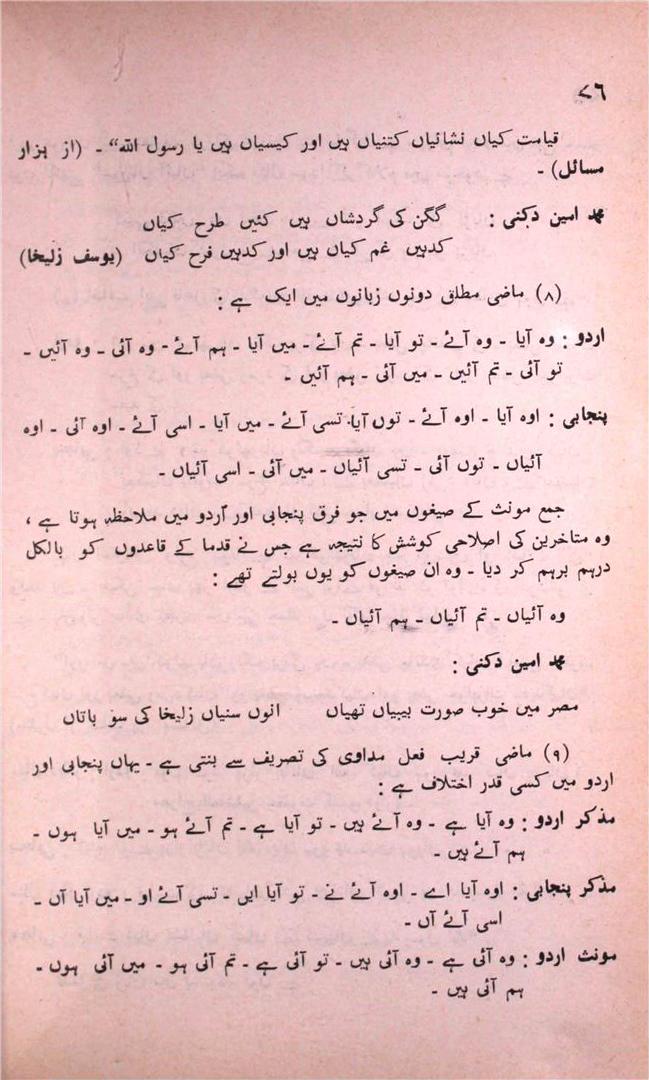 ۷۶
قیامت کیاں نشانیاں کتنیاں ہیں اور کیسیاں ہیں یا رسول اللہ“ ۔ (از ہزار
مسائل) ۔
محمد امین دکنی : گگن کی گردشاں ہیں کئیں طرح کیاں
کدہیں غم کیاں ہیں اور کدہیں فرح کیاں (یوسف زلیخا)
(۸) ماضی مطلق دونوں زبانوں میں ایک ہے :
اردو : وہ آیا ۔ وہ آئے ۔ تو آیا ۔ تم آئے ۔ میں آیا ۔ ہم آئے ۔ وہ آئی ۔ وہ آئیں ۔
تو آئی ۔ تم آئیں ۔ میں آئی ۔ ہم آئیں ۔
پنجابی : اوہ آیا ۔ اوہ آئے ۔ توں آیا تسی آئے ۔ میں آیا ۔ اسی آئے ۔ اوہ آئی ۔ اوہ
آئیاں ۔ توں آئی ۔ تسی آئیاں ۔ میں آئی ۔ اسی آئیاں ۔
جمع مونث کے صیغوں میں جو فرق پنجابی اور اُردو میں ملاحظہ ہوتا ہے ،
وہ متاخرین کی اصلاحی کوشش کا نتیجہ ہے جس نے قدما کے قاعدوں کو بالکل
درہم برہم کر دیا ۔ وہ ان صیغوں کو یوں بولتے تھے :
وہ آئیاں ۔ تم آئیاں ۔ ہم آئیاں ۔
محمد امین دکنی :
مصر میں خوب صورت بیبیاں تھیاں انوں سنیاں زلیخا کی سو باتاں
(۹) ماضی قریب فعل مداوی کی تصریف سے بنتی ہے ۔ یہاں پنجابی اور
اردو میں کسی قدر اختلاف ہے :
مذکر اردو : وہ آیا ہے ۔ وہ آئے ہیں ۔ تو آیا ہے ۔ تم آئے ہو ۔ میں آیا ہوں ۔
ہم آئے ہیں ۔
مذکر پنجابی : اوہ آیا اے ۔ اوہ آئے نے ۔ تو آیا ایں ۔ تسی آئے او ۔ میں آیا آں ۔
اسی آئے آں ۔
مونث اردو : وہ آئی ہے ۔ وہ آئی ہیں ۔ تو آئی ہے ۔ تم آئی ہو ۔ میں آئی ہوں ۔
ہم آئی ہیں ۔